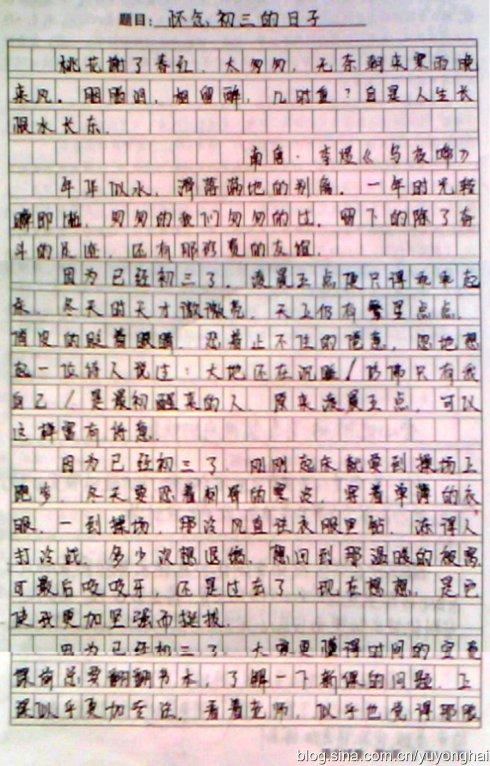 题目：怀念初三的日子
桃花谢了春红，太匆匆，无奈朝来寒雨晚
来风。胭脂泪，相留醉，几时重？自是人生长
恨水长东。
南唐·李煜《乌夜啼》
年华似水，滑落满地的别离，一年时光转
瞬即逝，匆匆的我们匆匆的过，留下的除了奋
斗的足迹，还有那珍贵的友谊。
因为已经初三了，凌晨五点便只得乖乖起
床，冬天的天才微微亮，天上仍有繁星点点，
俏皮的眨着眼睛，忍着止不住的倦意，忽地想
起一位诗人说过：大地还在沉睡/仿佛只有我
自己/是最初醒来的人，原来凌晨五点，可以
这样富有诗意。
因为已经初三了，刚刚起床就要到操场上
跑步，冬天要忍着刺骨的寒冷，穿着单薄的衣
服，一到操场，那冷风直往衣服里钻，冻得人
打冷战，多少次想退缩，想回到那温暖的被窝
可最后咬咬牙，还是过去了，现在想想，是它
使我更加坚强而挺拔。
因为已经初三了，大家更懂得时间的宝贵
课前总要翻翻书本，了解一下新课的问题，上
课似乎更加专注，看着老师，似乎也觉得那眼
blog.sina.com.cn/yuyonghai